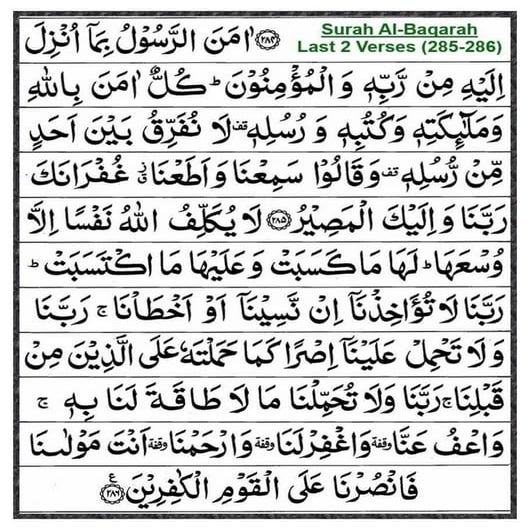 Surah Al-Baqarah
Last 2 Verses (285-286)
﴿۲۸۴﴾ اٰمَنَ الرَّسُوْلُ بِمَاۤ اُنْزِلَ
اِلَيْهِ مِنْ رَّبِّهٖ وَالْمُؤْمِنُوْنَ ؕ كُلٌّ اٰمَنَ بِاللّٰهِ
وَمَلٰٓئِكَتِهٖ وَكُتُبِهٖ وَرُسُلِهٖ قف لَا نُفَرِّقُ بَيْنَ اَحَدٍ
مِّنْ رُّسُلِهٖ قف وَقَالُوْا سَمِعْنَا وَاَطَعْنَا ز غُفْرَانَكَ
رَبَّنَا وَاِلَيْكَ الْمَصِيْرُ ﴿۲۸۵﴾ لَا يُكَلِّفُ اللّٰهُ نَفْسًا اِلَّا
وُسْعَهَا ؕ لَهَا مَا كَسَبَتْ وَعَلَيْهَا مَا اكْتَسَبَتْ ؕ
رَبَّنَا لَا تُؤَاخِذْنَاۤ اِنْ نَّسِيْنَاۤ اَوْ اَخْطَاْنَا ۚ رَبَّنَا
وَلَا تَحْمِلْ عَلَيْنَاۤ اِصْرًا كَمَا حَمَلْتَهٗ عَلَى الَّذِيْنَ مِنْ
قَبْلِنَا ۚ رَبَّنَا وَلَا تُحَمِّلْنَا مَا لَا طَاقَةَ لَنَا بِهٖ ۚ
وَاعْفُ عَنَّا وقفة وَاغْفِرْ لَنَا وقفة وَارْحَمْنَا وقفة اَنْتَ مَوْلٰىنَا
فَانْصُرْنَا عَلَى الْقَوْمِ الْكٰفِرِيْنَ ع ﴿۲۸۶﴾